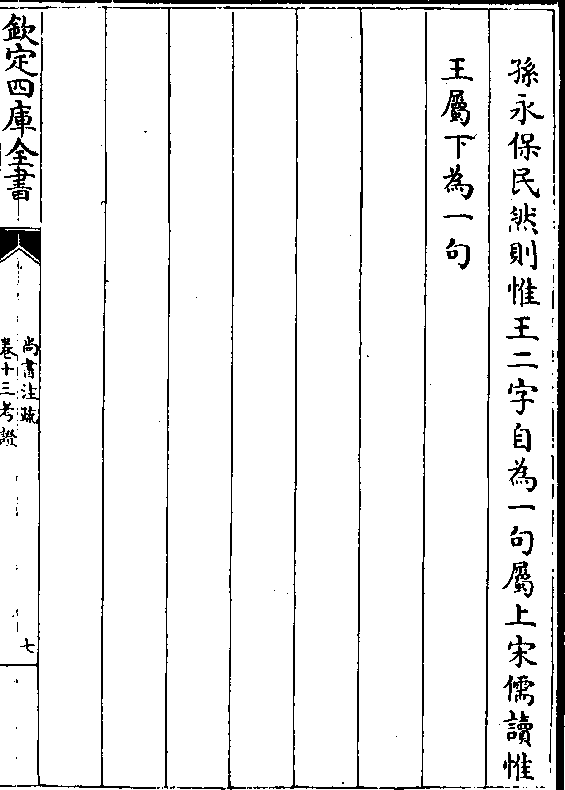 孫永保民然則惟王二字自為一句屬上宋儒讀惟
王屬下為一句
欽定四庫全書
尚書注疏
卷十三考證
七